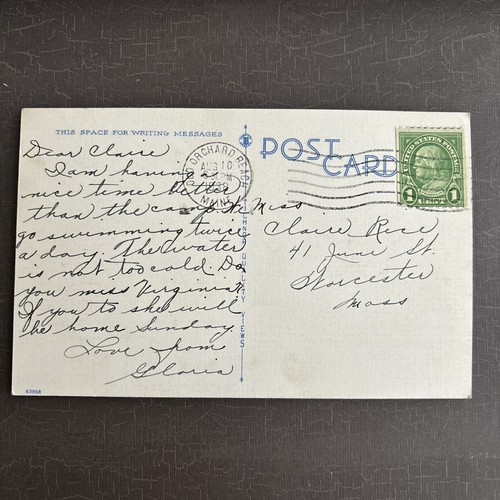 THIS SPACE FOR WRITING MESSAGES
POST CARD
Dear Claire
I am having
nice time better
than the camp. We
go swimming twice
a day. The water
is not too cold. Do
you miss Virginia?
If you to she will
be home Sunday.
Love from
Gloria
63968
OLD ORCHARD BEACH
AUG 10
PM
MAINE
UNITED STATES POSTAGE
1 CENT 1
Miss
Claire Rice
41 June St.
Worcester
Mass
QUALITY VIEWS